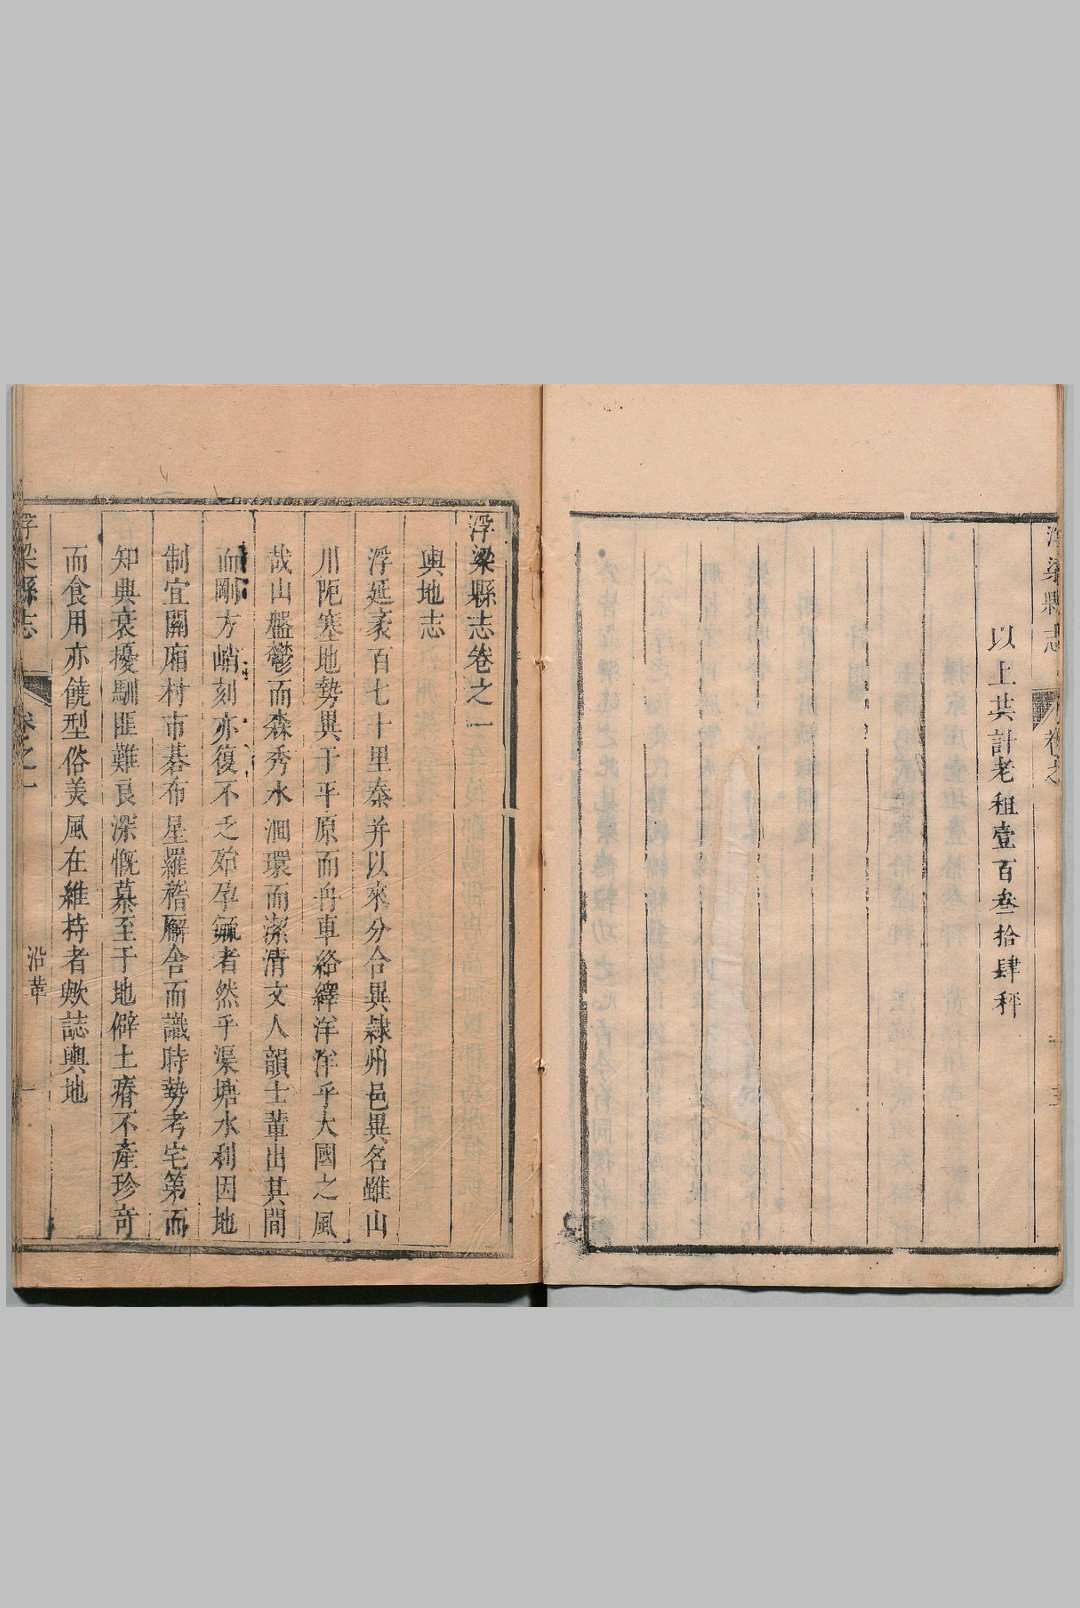 浮梁縣志
卷之
以上共計老租壹百叁拾肆秤
浮梁縣志卷之一
輿地志
浮延袤百七十里秦并以來分合異隷州邑異名雖山
川阨塞地勢異于平原而舟車絡繹洋洋乎大國之風
哉山盤鬱而森秀水洄環而潔清文人韻士輩出其間
而剛方峭刻亦復不乏殆孕毓者然乎渠塘水利因地
制宜關廂村市碁布星羅稽廨舍而識時勢考宅第而
知興衰擾馴匪難良深慨慕至于地僻土瘠不產珍奇
而食用亦饒型俗美風在維持者歟誌輿地
浮梁縣志
卷之一
沿革
一